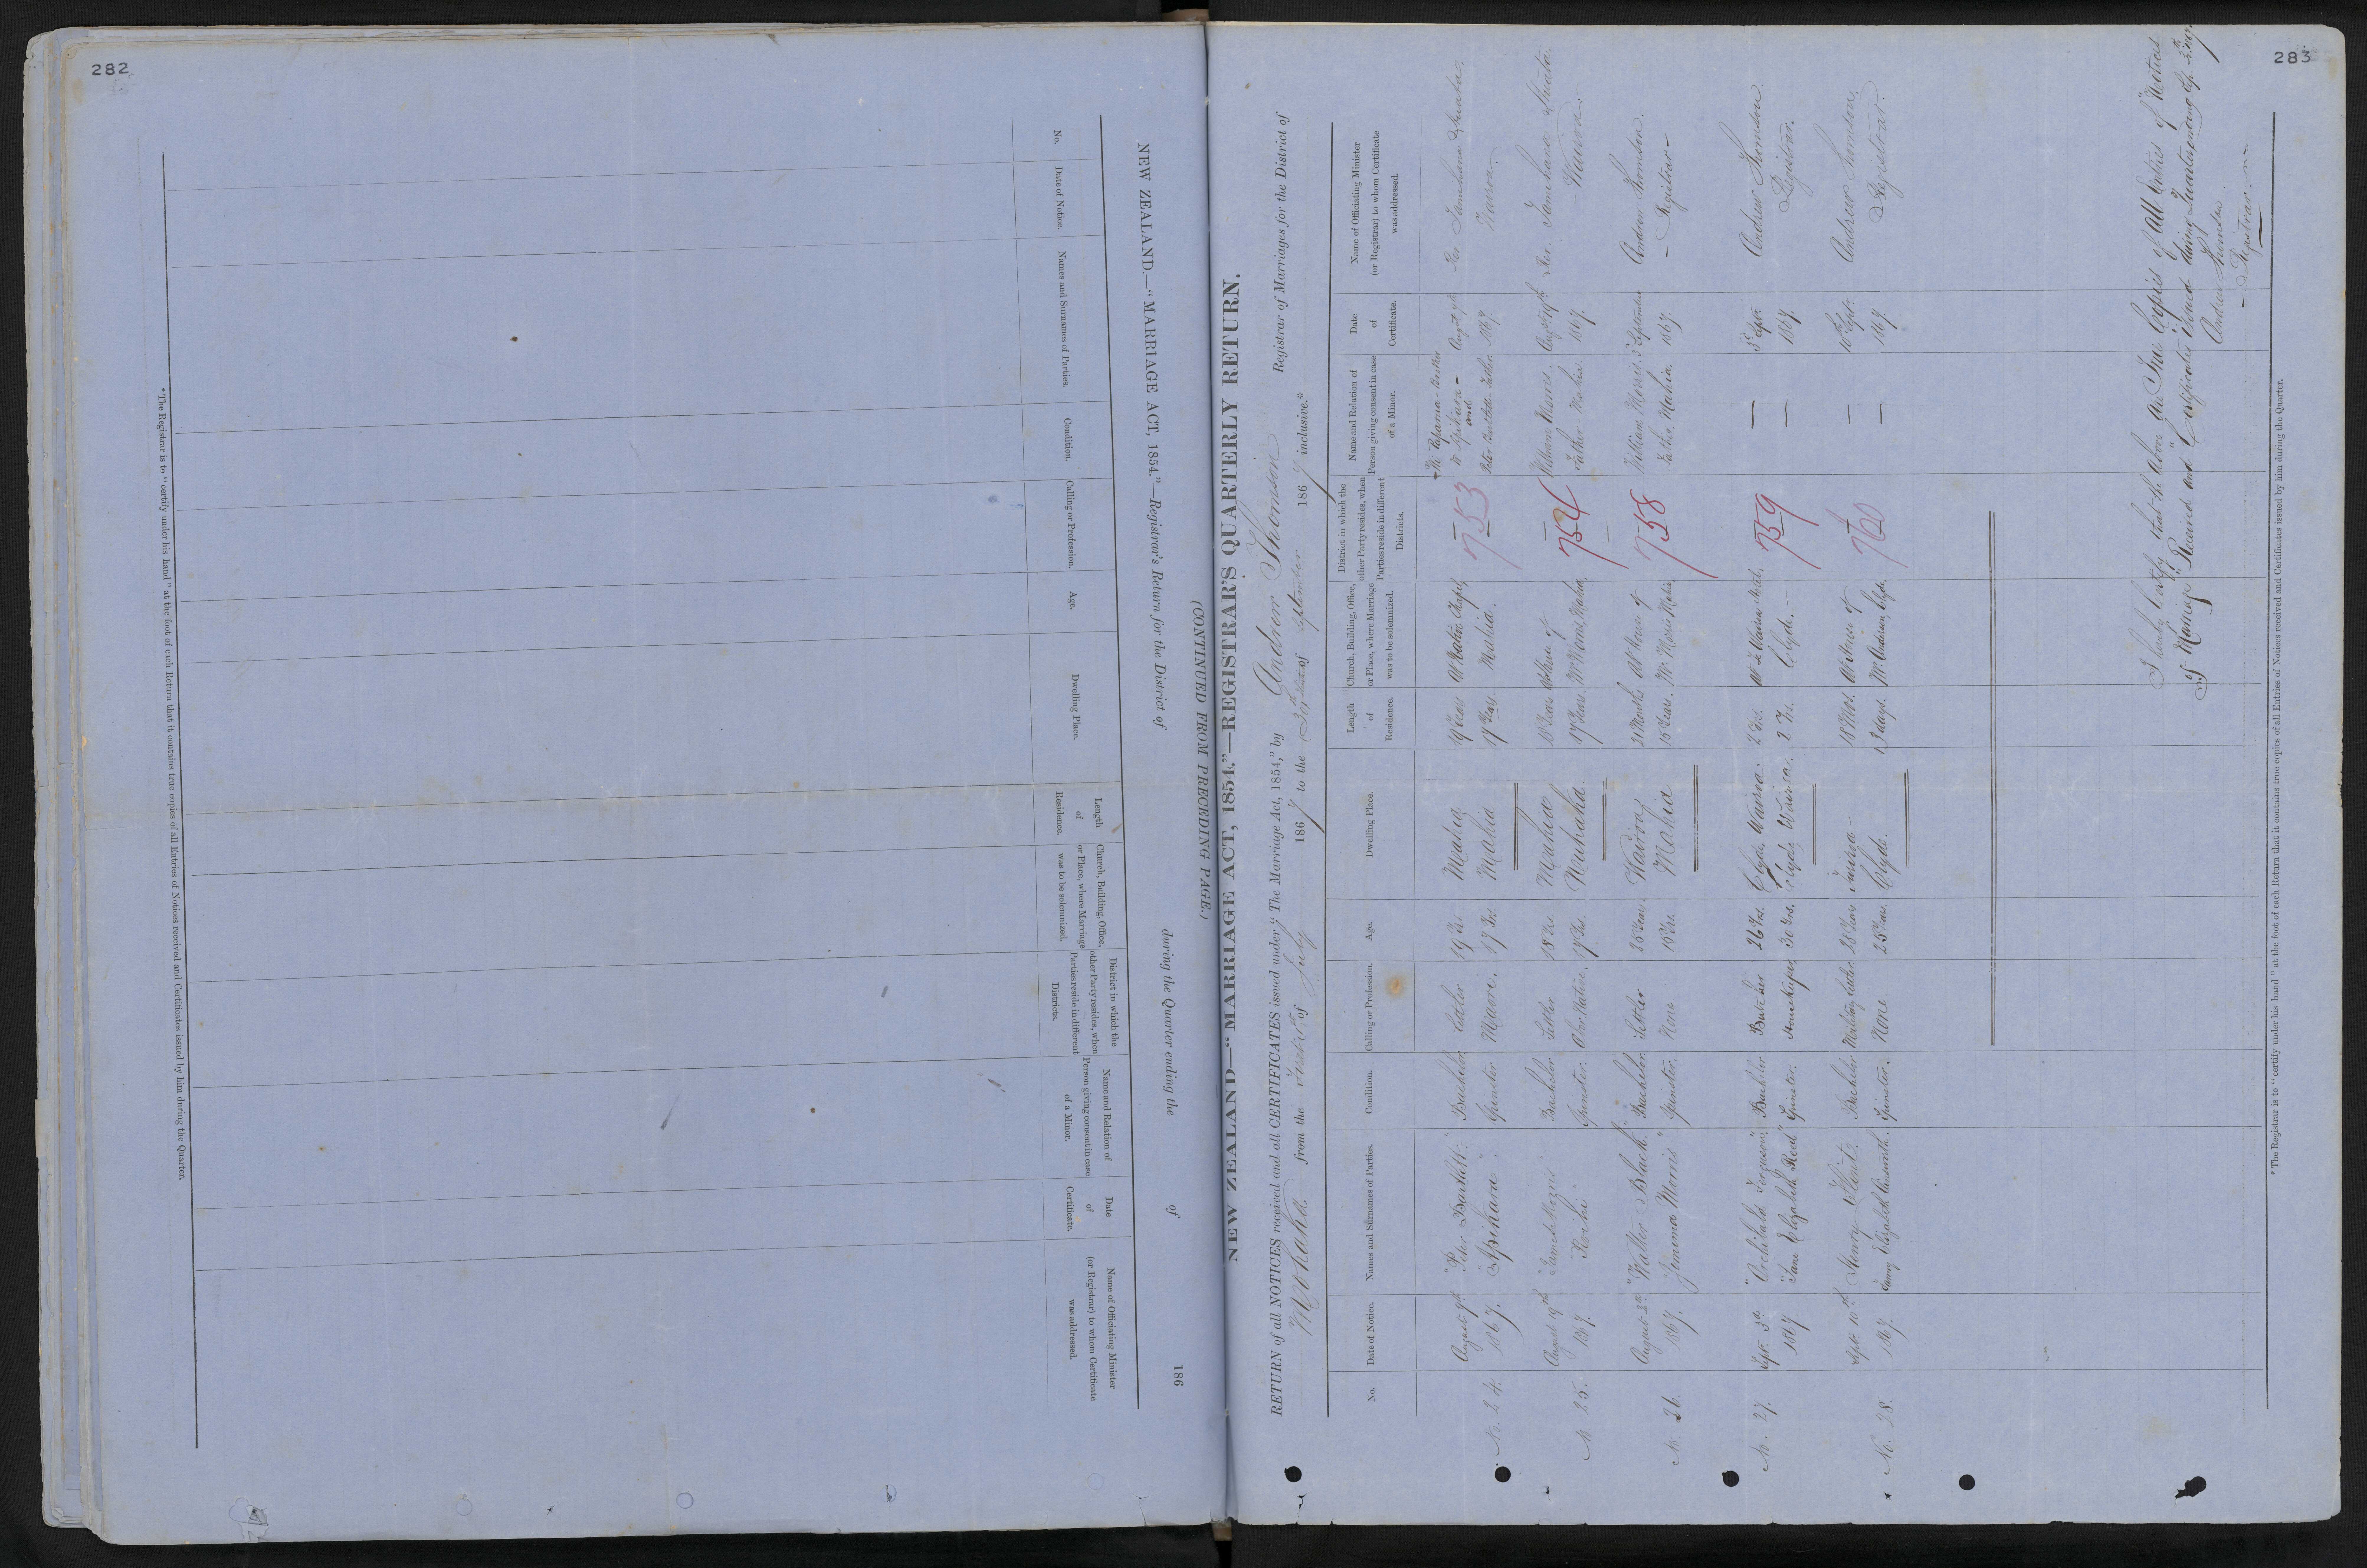 282
NEW ZEALAND.—"MARRIAGE ACT, 1854."—Registrar's Return for the District of during the Quarter ending the of 186
No.
Date of Notice.
Names and Surnames of Parties.
Condition.
Calling or Profession.
Age.
Dwelling Place.
Length of Residence.
Church, Building, Office, or Place, where Marriage was to be solemnized.
District in which the other Party resides, when Parties reside in different Districts.
Name and Relation of Person giving consent in case of a Minor.
Date of Certificate.
Name of Officiating Minister (or Registrar) to whom Certificate was addressed.
* The Registrar is to "certify under his hand" at the foot of each Return that it contains true copies of all Entries of Notices received and Certificates issued by him during the Quarter.
(CONTINUED FROM PRECEDING PAGE.)
283
NEW ZEALAND—"MARRIAGE ACT, 1854."—REGISTRAR'S QUARTERLY RETURN.
RETURN of all NOTICES received and all CERTIFICATES issued under "The Marriage Act, 1854," by Andrew Thomson Registrar of Marriages for the District of
Mohaka from the of July 1867 to the 30th of September 1867 inclusive.*
No.
Date of Notice.
Names and Surnames of Parties.
Condition.
Calling or Profession.
Age.
Dwelling Place.
Length of Residence.
Church, Building, Office, or Place, where Marriage was to be solemnized.
District in which the other Party resides, when Parties reside in different Districts.
Name and Relation of Person giving consent in case of a Minor.
Date of Certificate.
Name of Officiating Minister (or Registrar) to whom Certificate was addressed.
August 9th "Peter Bartlett" Bachelor Settler 19 Yrs. Mahia 19 Years At Chapel — August 9th Rev.
N. 24. 1867. "Apikara" Spinster Maori. 17 Yrs. Mahia 17 Years. Mahia. 753 Peter Bartlett Father 1867. Wairoa
August 19th "James Morris" Bachelor Settler 18 Yrs. Mahia 18 Years At House of — William Morris. August 19th Rev.
N. 25. 1867. "Korohi" Spinster. 17 Yrs. 17 Years Mr. Morris Mahia. 754 Father Mahia 1867. Wairoa.
August "Walter Black" Bachelor Settler 25 Years Wairoa 21 Months At House of — William Morris September Andrew Thomson.
N. 26. 1867. Jemima Morris" Spinster. None 15 Yrs. Mahia 15 Years. Mr. Morris Mahia 758 Father. Mahia. 1867. — Registrar —
Sept. 3d. "Archibald Ferguson" Bachelor Butcher 26 Yrs. Clyde Wairoa. 2 Yrs. Hotel, — — 3d Sept. Andrew Thomson
N. 27. 1867 "Jane Elizabeth Reed" Spinster. Housekeeper 30 Yrs. Clyde Wairoa. 2 Yrs. Clyde. — 759 — 1867 Registrar.
Sept. 10th Henry Bachelor Military Settler 28 Years — 18 Mos. At House of — — 10th Sept. Andrew Thomson.
No. 28. 1867. Fanny Elizabeth Spinster. None. 25 Years. Clyde. 3 days. Mr. Clyde. 760 — 1867. Registrar.
I hereby Certify that the Above are True Copies of all Entries of "Notices
of Marriage" Received and "Certificates" issued during Quarter ending
Andrew Thomson
— Registrar. —
* The Registrar is to "certify under his hand" at the foot of each Return that it contains true copies of all Entries of Notices received and Certificates issued by him during the Quarter.